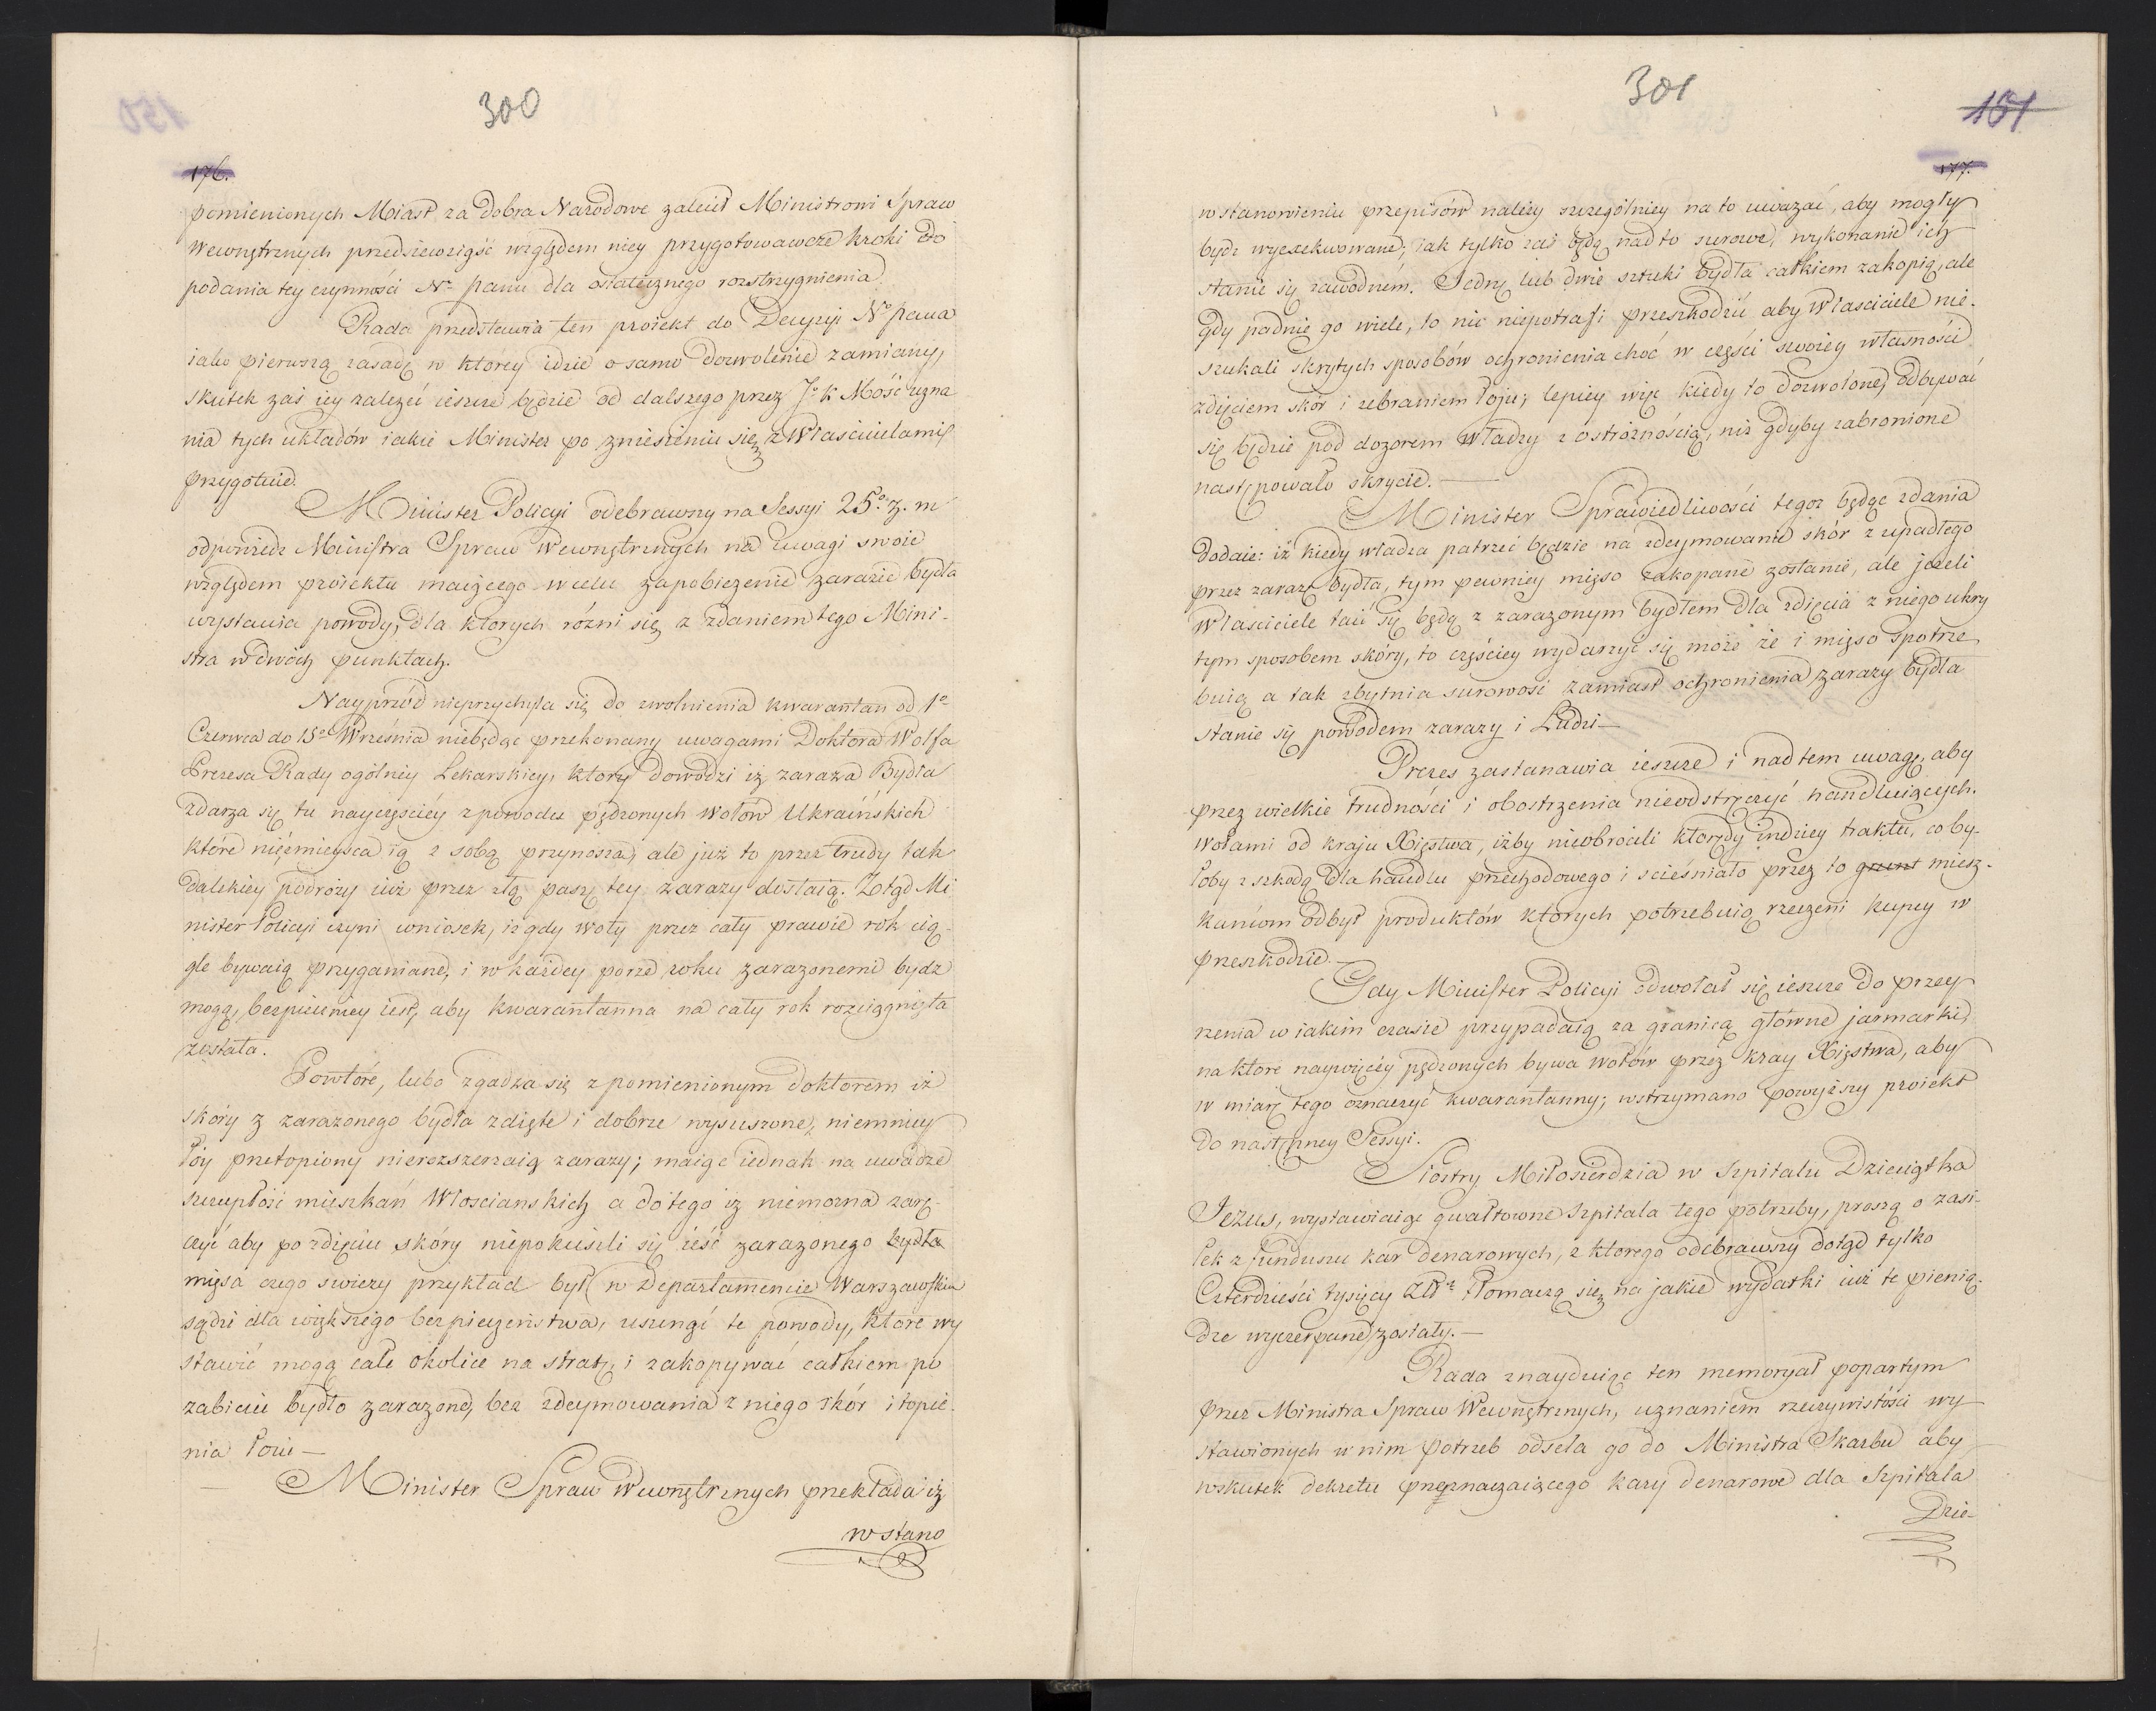 150
300
176.
pomienionych Miast za dobra Narodowe zalecił Ministrowi Spraw
Wewnętrznych przedsiewziąść względem niey przygotowawcze kroki do
podania tey czynności No panu dla ostatecznego rozstrzygnienia.
Rada przedstawia ten proiekt do Decyzyi No pana
iako pierwszą zasadę w ktorey idzie o samo dozwolenie zamiany,
skutek zaś iey zależeć ieszcze będzie od dalszego przez Jo K Mość uzna
nia tych układów iakie Minister po zniesieniu się z Właścicielami
przygotuie.
Minister Policyi odebrawszy na Sessyi 25o z. m
odpowiedz Ministra Spraw Wewnętrznych na uwagi swoie
względem proiektu maiącego w celu zapobieżenie zarazie bydła
wystawia powody, dla ktorych różni się z zdaniem tego Mini-
stra w dwóch punktach.
Nayprzód nieprzychyla się do zwolnienia kwarantan od 1o
Czerwca do 15o Września niebędąc przekonany uwagami Doktora Wolfa
Prezesa Rady ogólney Lekarskiey, ktory dowodzi iż zaraza Bydła
zdarza się tu nayczęściey z powodu pędzonych wołów Ukraińskich
które niezmieysca ią z sobą przynoszą, ale już to przez trudy tak
dalekiey podróży iuż przez złą paszę tey zarazy dostaią. Ztąd Mi
nister Policyi czyni wniosek, iż gdy woły przez cały prawie rok cią-
gle bywaią przyganiane, i w każdey porze roku zarazonemi bydz
mogą, bezpieczniey iest, aby kwarantanna na cały rok rozciągnięta
została.
Powtóre, lubo zgadza się z pomienionym doktorem iż
skóry z zarazonego bydła zdięte i dobrze wysuszone, niemniey
łoy przetopiony nierozszerzaią zarazy; maiąc iednak na uwadze
szczupłość mieszkań Włosciańskich a do tego iż niemożna zarę-
czyć aby po zdięciu skóry niepokusili się ieść zarazonego bydła
mięsa czego swieży przykład był w Departamencie Warszawskim
sądzi dla większego bezpieczeństwa, usunąć te powody, które wy
stawić mogą całe okolice na stratę, i zakopywać całkiem po
zabiciu bydło zarażone, bez zdeymowania z niego skór i topie-
nia łoiu —
Minister Spraw Wewnętrznych przekłada iż
w stano
301
151
177.
w stanowieniu przepisów należy szczególniey na to uważać, aby mogły
bydź wyexekwowane; iak tylko zaś będą nadto surowe, wykonanie ich
stanie się zawodném. Jednę lub dwie sztuki bydła całkiem zakopią, ale
gdy padnie go wiele, to nic niepotrafi przeszkodzić aby Właściciele nie-
szukali skrytych sposobów ochronienia choć w części swoiey własności
zdięciem skór i zebraniem łoju; lepiey więc kiedy to dozwolone, odbywać
się będzie pod dozorem Władzy z ostróżnością, niż gdyby zabronione
następowało skrycie. —
Minister Sprawiedliwości tegoż będąc zdania
dodaie: iż kiedy władza patrzeć będzie na zdeymowanie skór z upadłego
przez zarazę bydła, tym pewniey mięso zakopane zostanie, ale jeżeli
Właściciele taić się będą z zarażonym bydłem dla zdięcia z niego ukry
tym sposobem skóry, to częściey wydarzyć się może że i mięso spotrze
buią a tak zbytnia surowość zamiast ochronienia zarazy bydła
stanie się powodem zarazy i Ludzi —
Prezes zastanawia ieszcze i nad tem uwagę, aby
przez wielkie trudności i obostrzenia nieodstręczyć handluiących.
wołami od kraju Xięstwa, iżby nieobrócili którędy indziey traktu, co by-
łoby z szkodą dla handlu przechodowego i scieśniało przez to grunt miesz-
kańcom odbyt produktów których potrzebuią rzeczeni kupcy w
przeszkodzie. —
Gdy Minister Policyi odwołał się ieszcze do przey
rzenia w iakim czasie przypadaią za granicą główne jarmarki,
na które naywięcey pędzonych bywa wołów przez kray Xięstwa, aby
w miarę tego oznaczyć kwarantanny; wstrzymano powyższy proiekt
do następney Sessyi.
Siostry Miłosierdzia w Szpitalu Dzieciątka
Jezus, wystawiaiąc gwałtowne Szpitala tego potrzeby, proszą o zasi-
łek z funduszu kar denarowych, z ktorego odebrawszy dotąd tylko
Czterdzieści tysięcy Złt tłomaczą się na jakie wydatki iuż te pienią-
dze wyczerpane zostały. —
Rada znayduiąc ten memoryał popartym
przez Ministra Spraw Wewnętrznych, uznaniem rzeczywistości wy
stawionych w nim potrzeb odseła go do Ministra Skarbu aby
wskutek dekretu przeznaczaiącego kary denarowe dla Szpitala
Dzie-